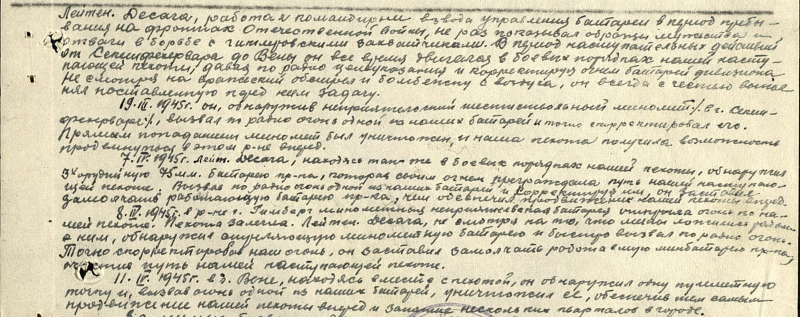 Лейтен. Десага, работая командиром взвода управления батареи в период пребы-
вания на фронтах Отечественной войны, не раз показывал образцы мужества и
отваги в борьбе с гитлеровскими захватчиками. В период наступательных действий
от Секешфехервара до Вены он все время двигался в боевых порядках нашей насту-
пающей пехоты, давая по радио целеуказания и корректируя огнем батарей дивизиона,
не смотря на вражеский обстрел и бомбежку с воздуха, он всегда с честью выпол-
нял поставленную перед ним задачу.
19.III.1945г. он, обнаружив неприятельский шестиствольный миномет /в г. Секеш-
фехервар/, вызвал по радио огонь одной из наших батарей и точно скорректировал его.
Прямым попаданием миномет был уничтожен, и наша пехота получила возможность
продвинуться в этом р-не вперед.
7.IV.1945г. Лейт. Десага, находясь так же в боевых порядках нашей пехоты, обнаружил
3х орудийную 75мм. батарею пр-ка, которая своим огнем преграждала путь нашей наступаю-
щей пехоте. Вызвав по радио огонь одной из наших батарей и корректируя им, он заставил
замолчать работающую батарею пр-ка, чем обеспечил продвижение нашей пехоты вперед.
8.IV.1945г. в р-не г. Гимберг минометная неприятельская батарея открыла огонь по на-
шей пехоте. Пехота залегла. Лейтен. Десага, не смотря на то, что мины ложились рядом
с ним, обнаружил минометную батарею и быстро вызвал по радио огонь.
Точно скорректировав наш огонь, он заставил замолчать работавшую минбатарею пр-ка,
очистив путь нашей наступающей пехоте.
11.IV.1945г. в г. Вене, находясь вместе с пехотой, он обнаружил одну пулеметную
точку и, вызвав огонь одной из наших батарей, уничтожил её, обеспечив тем самым
продвижение нашей пехоты вперед и занятие нескольких кварталов в городе.